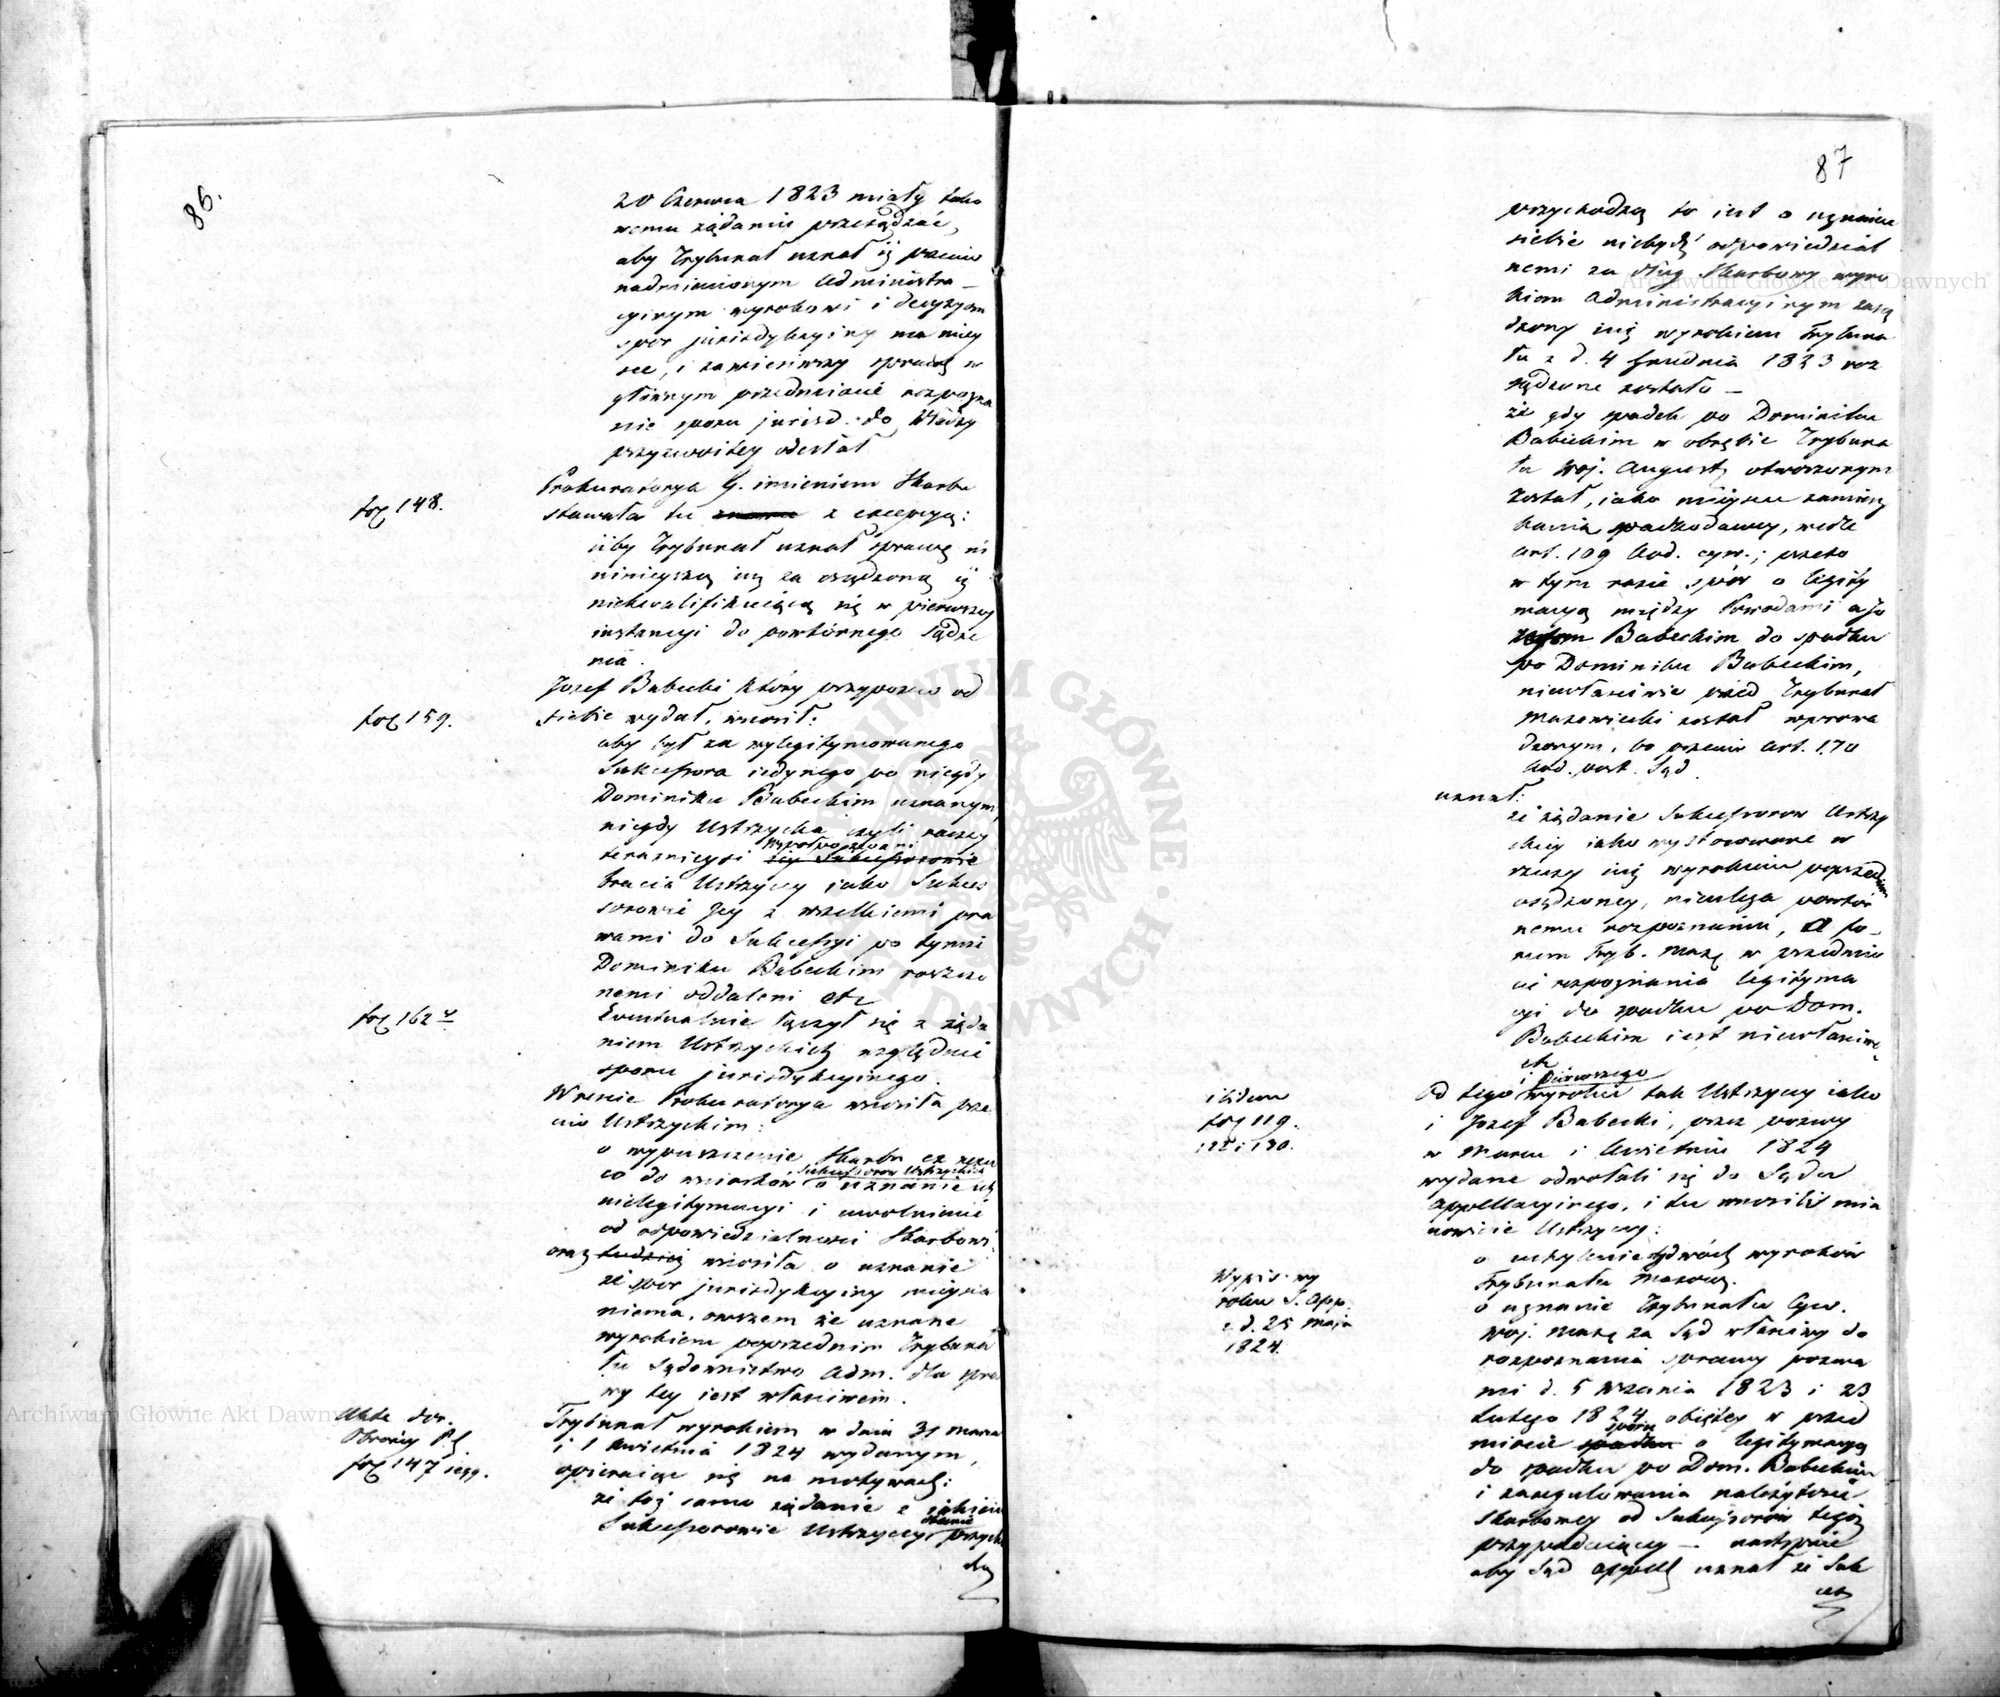 86.
20 Czerwca 1823 miały tako
wemu żądaniu przesądzać,
aby Trybunał uznał iż przeciw
nadmienionym Administra-
cyinym wyrokowi i decyzyom
spór jurisdykcyiny ma miey
sce, i zawiesiwszy sprawę w
głównym przedmiocie rozpozna
nie sporu jurisd. do Władzy
przyzwoitey odesłał
fol 148.
Prokuratorya G. imieniem Skarbu
stawała tu z excepcyą:
iżby Trybunał uznał sprawę ni
nieyszą iuż za osądzoną iż
niekwalifikuiącą się w pierwszey
instancyi do powtórnego sądze
nia.
fol 159.
Jozef Babecki który przypozew od
siebie wydał, wnosił:
aby był za wylegitymowanego
Sukcessora iedynego po niegdy
Dominiku Babeckim uznanym,
niegdy Ustrzycka czyli raczey
teraznieysi współpozwani
bracia Ustrzyccy jako Sukces
sorowie Jey z wszelkiemi pra
wami do Sukcessyi po tymże
Dominiku Babeckim roszczo
nemi oddaleni etc
fol 162 v
Ewentualnie łączył się z żąda
niem Ustrzyckich względnie
sporu jurisdykcyinego.
Wreście Prokuratorya wnosiła prze
ciw Ustrzyckim:
o wypuszczenie Skarbu ex nexu
co do wniosków Sukcessorów Ustrzyckich o uznanie ich
nielegitymacyi i uwolnienie
od odpowiedzialności Skarbowi
oraz wnosiła o uznanie
że spór jurisdykcyiny mieysca
niema, owszem że uznane
wyrokiem poprzednim Trybuna
łu Sądownictwo Adm. dla spra
wy tey jest właściwem.
Akta dow.
Obrońcy P.G.
fol 147 seqq.
Trybunał wyrokiem w dniu 31 marca
i 1 kwietnia 1824 wydanym,
opieraiąc się na motywach:
że toż samo żądanie z jakiem
Sukcessorowie Ustrzyccy obecnie przycho
dzą
87
przychodzą to iest o uznanie
siebie niebydź odpowiedzial
nemi za dług Skarbowy wyro
kiem Administracyinym zasą
dzony iuż wyrokiem Trybuna
łu z d. 4 Grudnia 1823 roz
sądzone zostało -
że gdy spadek po Dominiku
Babeckim w obrębie Trybuna
łu Woj. August. otworzonym
został, jako mieyscu zamiesz
kania spadkodawcy, wedle
art. 109 Kod. cyw.; przeto
w tym razie spór o legity
macyą między Powodami a Jo
zefem Babeckim do spadku
po Dominiku Babeckim,
niewłaściwie przed Trybunał
Mazowiecki został wprowa
dzonym, bo przeciw Art. 170
Kod. post. Sąd.
uznał:
że żądanie Sukcessorow Ustrzy
ckiey jako wystosowane w
rzeczy iuż wyrokiem poprzednim
osądzoney, nieulega powtór
nemu rozpoznaniu, a fo-
rum Tryb. Mazo. w przedmio
cie rozpoznania legityma
cyi do spadku po Dom.
Babeckim iest niewłaściwe
etc
ibidem
fol 119.
122 i 130.
Od tego i pierwszego wyroku tak Ustrzyccy iako
i Jozef Babecki, przez pozwy
w Marcu i Kwietniu 1824
wydane odwołali się do Sądu
Appellacyinego, i tu wnosili mia
nowicie Ustrzyccy:
Wypis wy
roku S. App.
z d. 25 Maja
1824.
o uchylenie dwóch wyroków
Trybunału Mazow.
o uznanie Trybunału Cyw.
Woj. Mazo. za Sąd właściwy do
rozpoznania sprawy pozwa
mi d. 5 Września 1823 i 23
Lutego 1824 obiętey w przed
miocie sporu o legitymacyą
do spadku po Dom. Babeckim
i zaregulowania należytości
Skarbowey od Sukcessorow tegoż
przypadaiącey - następnie
aby Sąd appell. uznał że Suk
ces